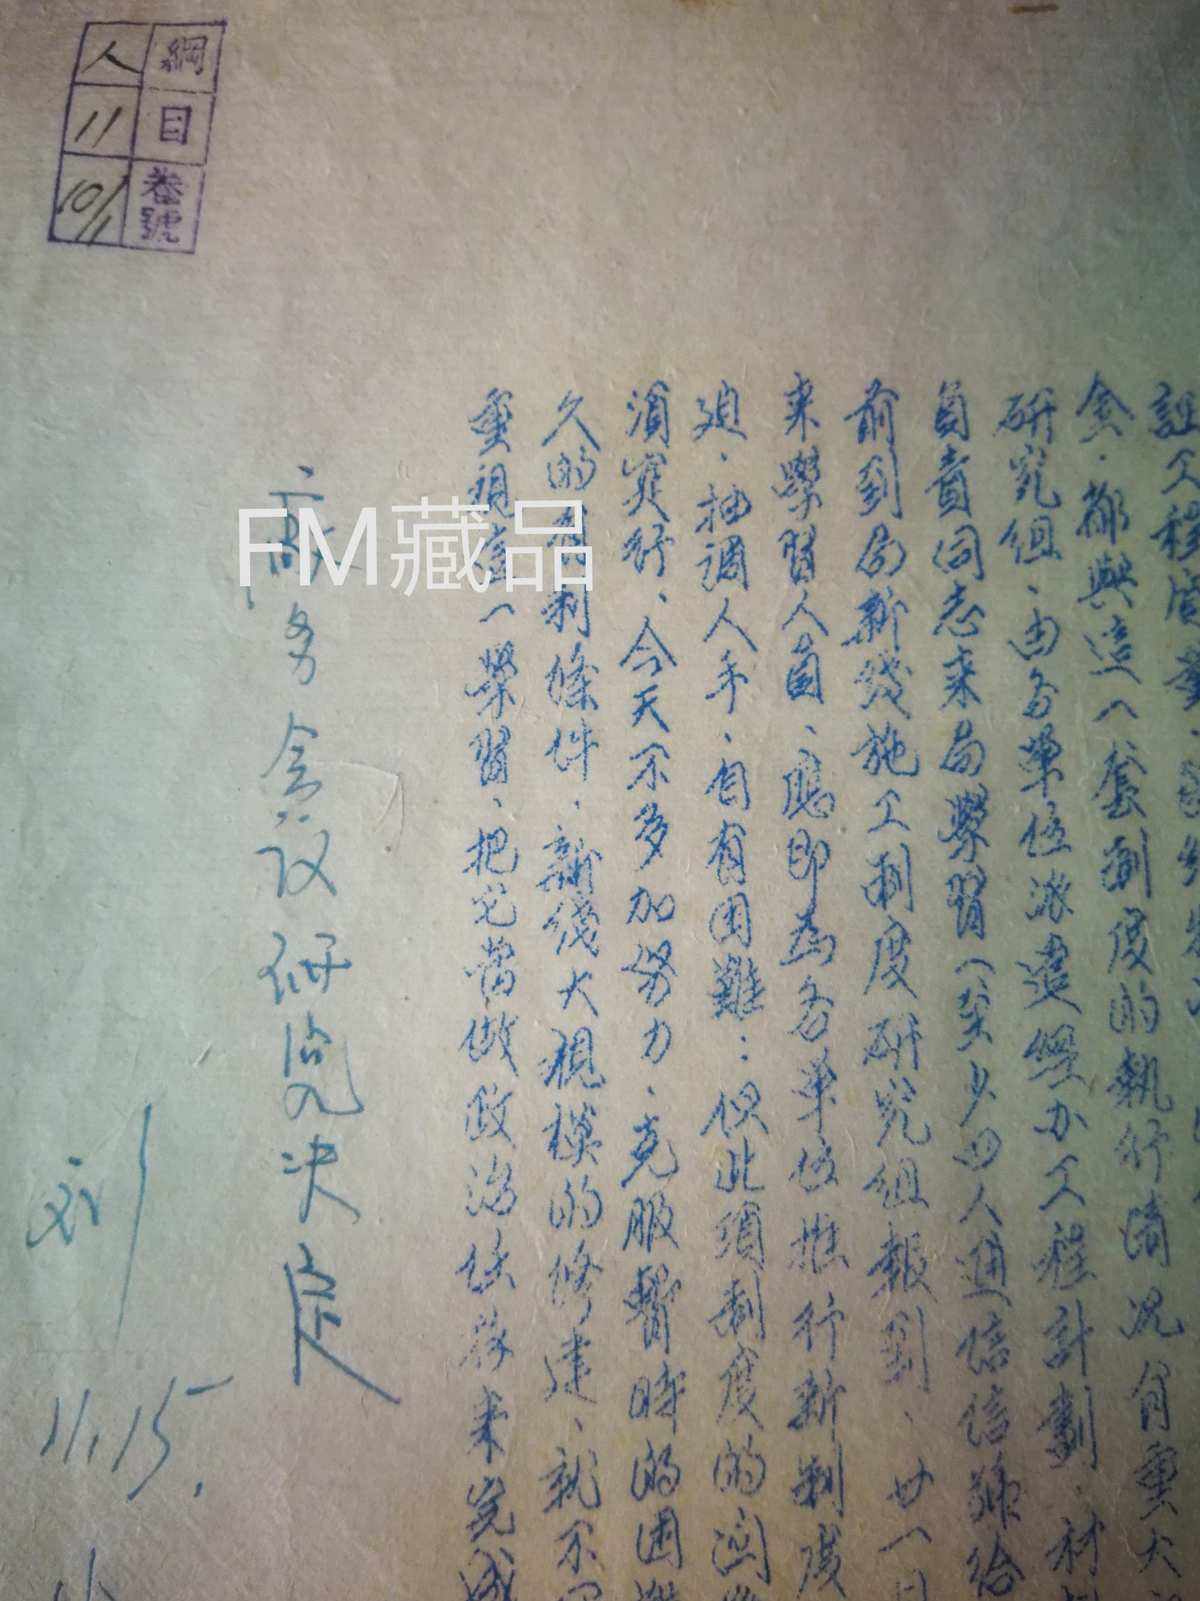 証工程質
金、都與這一套制度的執行情况有重大
研究組、由各單位派遣經办工程計劃、材
負責同志来局學習(至少四人連信信號給
前到局新綫施工制度研究組報到、廿一日
来學習人員、應即為各單位推行新制度
迫、抽調人手、自有困難:但此項制度的
須实行、今天不多加努力、克服暫時的困難
久的有利條件、新綫大規模的修建、就不
重視這一學習、把它當做政治任務来完成
會议研究决定
刘
11.15.
綱 目 卷號
人 11 10/11
FM藏品